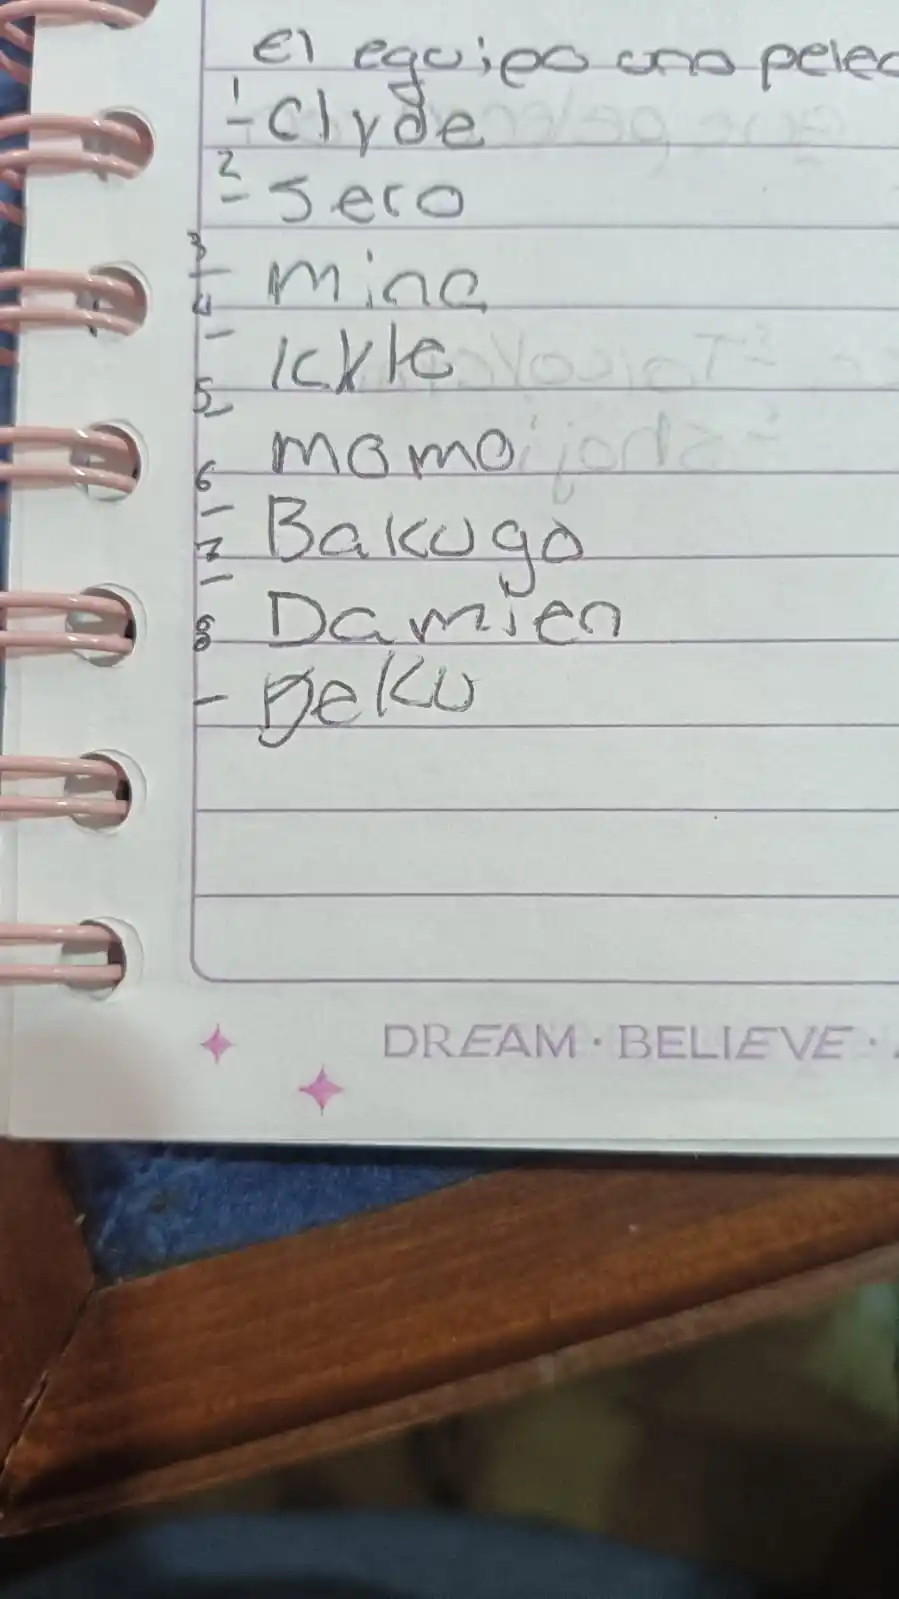 El equipo uno pelea
1- Clyde
2- Sero
3- mina
4- Ickle
5- momo
6- Bakugo
7- Damien
8- Deku
DREAM · BELIEVE ·